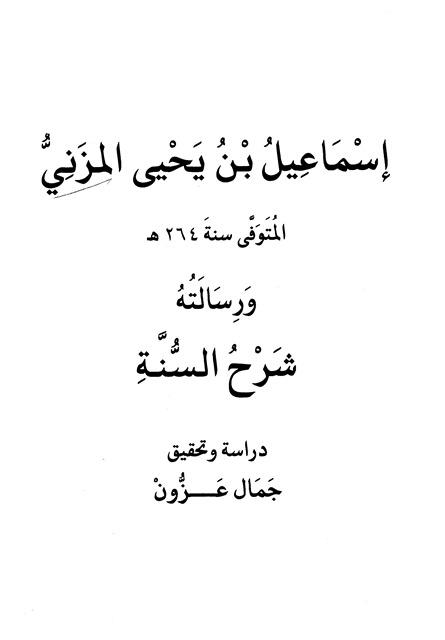 إِسْمَاعِيلُ بْنُ يَحْيى المزَنِيُّ
المُتَوَفَّى سنةَ ٢٦٤ هـ
وَرِسَالَتُهُ
شَرْحُ السُّنَّةِ
دراسة وتحقيق
جَمَال عَـــزُّونْ